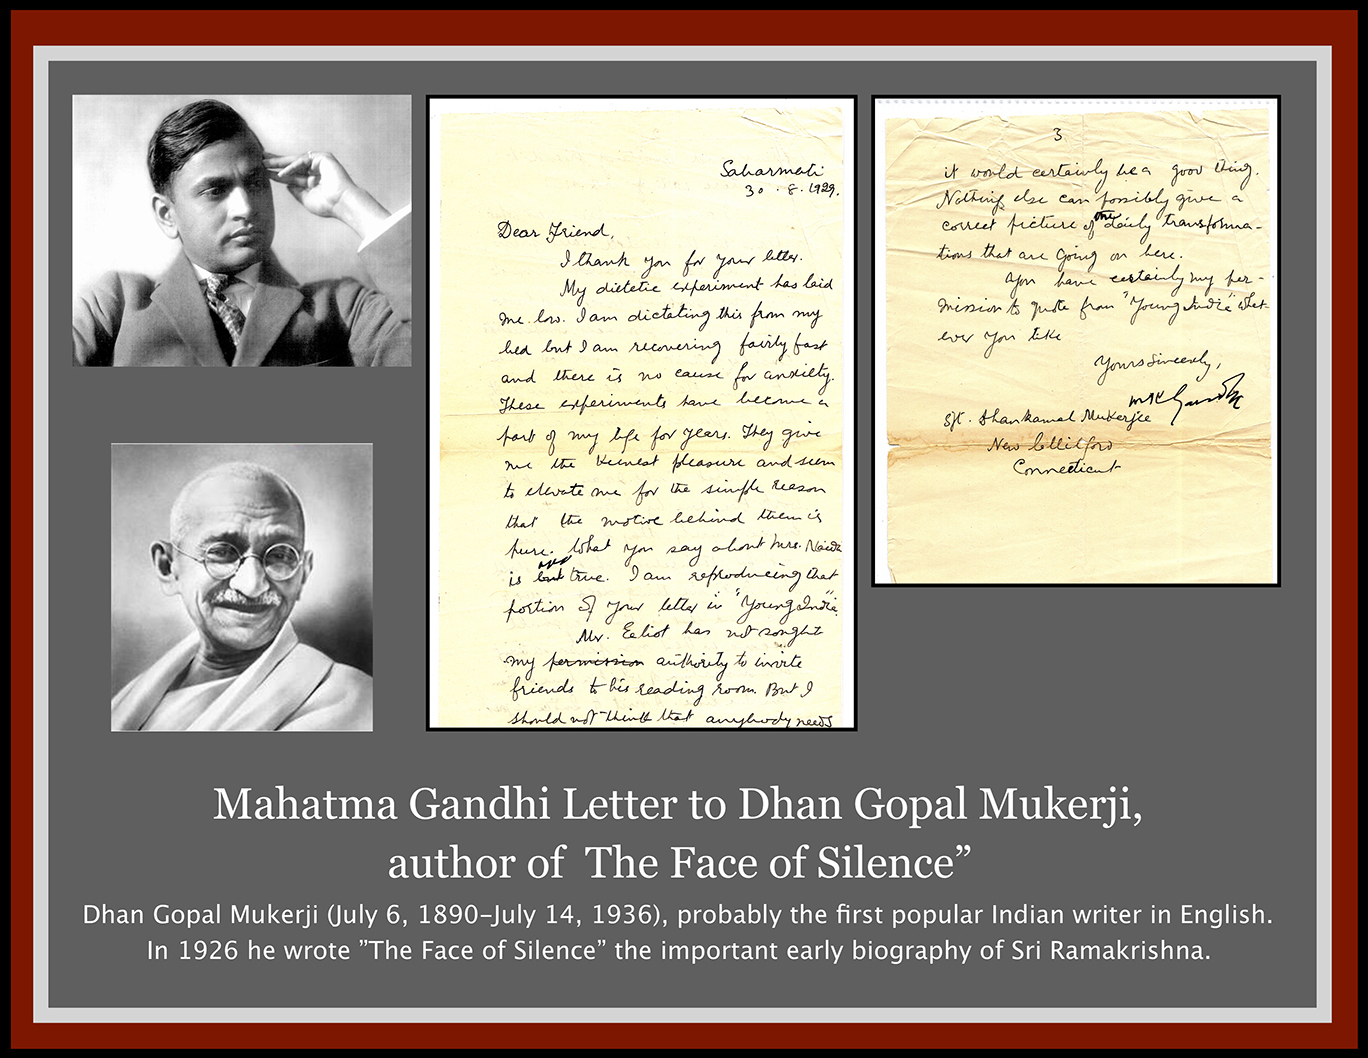 Sabarmati
30.8.1929.
Dear Friend,
I thank you for your letter.
My dietetic experiment has laid
me low. I am dictating this from my
bed but I am recovering fairly fast
and there is no cause for anxiety.
These experiments have become a
part of my life for years. They give
me the keenest pleasure and seem
to elevate me for the simple reason
that the motive behind them is
pure. What you say about Mrs. Naidu
is true. I am reproducing that
portion of your letter in "Young India".
Mr. has not sought
my permission authority to invite
friends to his reading room. But I
should not think that anybody needs
3
it would certainly be a good thing.
Nothing else can possibly give a
correct picture of the daily transforma-
tions that are going on here.
You have certainly my per-
mission to quote from "Young India" what-
ever you like
Yours sincerely,
MKGandhi
Sjt. Dhankamal Mukerjee
New
Connecticut
Mahatma Gandhi Letter to Dhan Gopal Mukerji,
author of The Face of Silence”
Dhan Gopal Mukerji (July 6, 1890–July 14, 1936), probably the first popular Indian writer in English.
In 1926 he wrote ”The Face of Silence” the important early biography of Sri Ramakrishna.